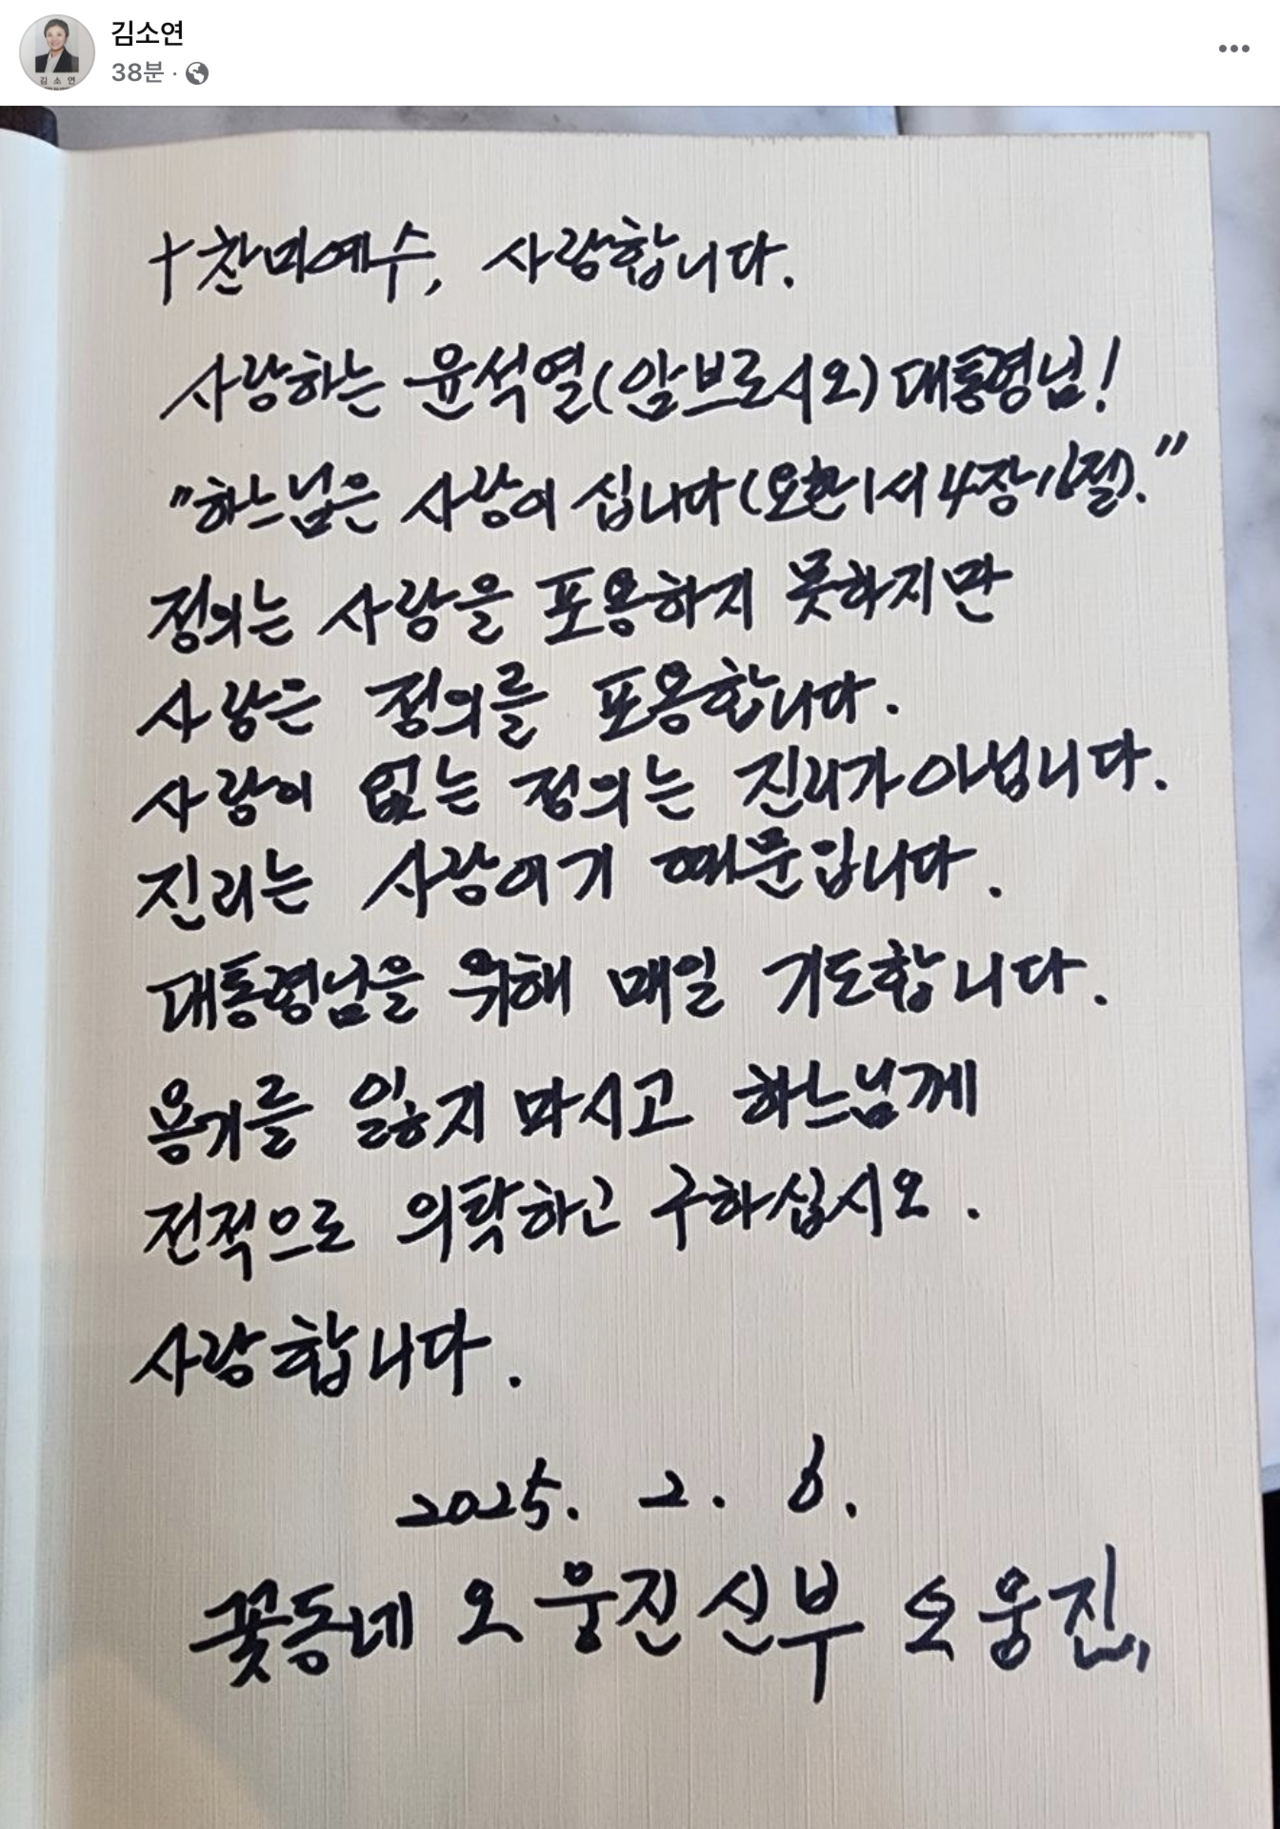 김소연
38분 ·
김 소 연
十찬미예수, 사랑합니다.
사랑하는 윤석열(암브로시오) 대통령님!
"하느님은 사랑이 십니다(요한1서 4장16절)."
정의는 사랑을 포용하지 못하지만
사랑은 정의를 포용합니다.
사랑이 없는 정의는 진리가 아닙니다.
진리는 사랑이기 때문입니다.
대통령님을 위해 매일 기도합니다.
용기를 잃지 마시고 하느님께
전적으로 의탁하고 구하십시오.
사랑합니다.
2025. 2. 6.
꽃동네 오웅진 신부 오웅진,